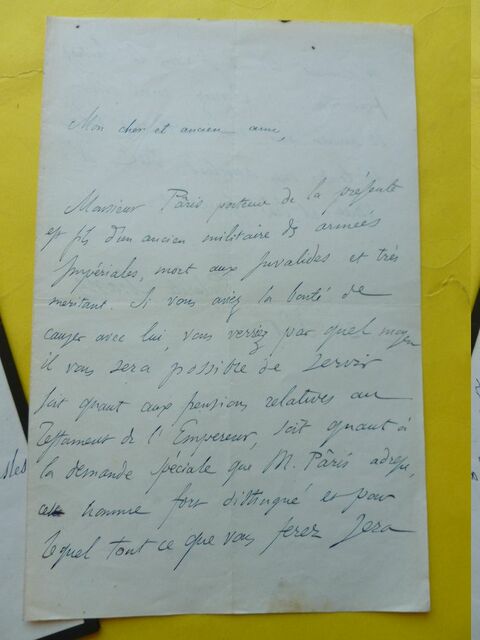 Mon cher et ancien ami,
Monsieur Pâris porteur de la présente
est fils d'un ancien militaire ds armées
Impériales, mort aux Invalides et très
méritant. Si vous aviez la bonté de
causer avec lui, vous verriez par quel moyen
il vous sera possible de servir
soit quant aux pensions relatives au
Testament de l'Empereur, soit quant à
la demande spéciale que M. Pâris adresse,
homme fort distingué et pour
lequel tout ce que vous ferez sera